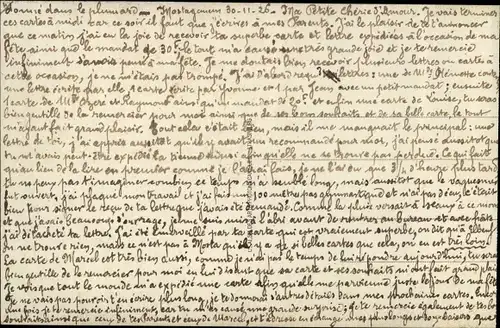 Donné dans le plumard. Mostaganem 30-11-26. Ma Petite Chérie d'Amour. Je viens terminer
ces cartes à midi car ce soir il faut que j'écrives à mes Parents. J'ai le plaisir de te l'annoncer
que ce matin, j'ai eu la joie de recevoir ta superbe carte et lettre expédiées à l'occasion de ma
fête ainsi que le mandat de 30f. le tout m'a causé une très grande joie et je te remercie
infiniment d'avoir pensé à ma fête. Je me doutais bien recevoir plusieurs lettres ou cartes à
cette occasion, je ne m'étais pas trompé. J'ai d'abord reçu lettres: une de
une lettre écrite par elle, 1 carte écrite par Yvonne et 1 par Jean avec un petit mandat; ensuite
1 carte de et Raymond ainsi qu'un mandat de 20f. et enfin une carte de Louise, tu seras
bien gentille de la remercier pour moi ainsi que de ses bons souhaits et de sa belle carte, le tout
m'ayant fait grand plaisir. Tout cela c'était bien, mais il me manquait le principal: une
lettre de toi, j'ai appris aussitôt qu'il y avait un recommandé pour moi, j'ai pensé aussitôt que
tu m'avais peut-être expédié la tienne ainsi afin qu'elle ne se trouve pas perdue. Ce qui fait
qu'au lieu de la lire en premier comme je l'aurai fais, je ne l'ai eu que 1/2 d'heure plus tard
tu ne peux pas t'imaginer combien ce temps m'a semblé long, mais aussitôt que le vaguemestre
fut ouvert, j'ai plaqué mon travail et j'ai fait un 100 mètres pas gymnastique et m'a pas donc le était
bien long signer le reçu de ta lettre que j'avais été demandé. Comme la pluie versait à seaux à ce moment
et que j'avais beaucoup d'ouvrage, je me suis mis à l'abri avant de rentrer au bureau et avec hâte
j'ai détaché ta lettre. J'ai été émerveillé par ta carte qui est vraiment superbe, on dit qu'à Elbeuf
on ne trouve rien, mais ce n'est pas à Mosta qu'il y a de si belles cartes que cela, on en est très loin.
La carte de Marcel est très bien aussi, comme je n'ai pas le temps de lui répondre aujourd'hui, tu seras
bien gentille de le remercier pour moi en lui disant que sa carte et ses souhaits m'ont fait grand plaisir.
Je vois que tout le monde m'a expédié une carte afin qu'elle me parvienne juste le jour de ma fête
Je ne vais pas pouvoir t'en écrire plus long, je te donnerai d'autres détails dans mes prochaines cartes. Encore
une fois je te remercie infiniment, car tu m'as causé une grande surprise; je te remercie également de tes
souhaits ainsi que ceux de tes Parents et ceux de Marcel, et t'adresse en échange mes plus longs et doux baisers que